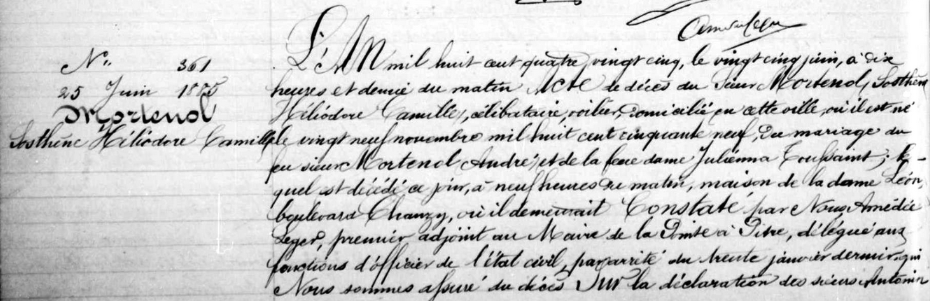 N° 361
25 Juin 1885
Mortenol
Sosthène Héliodore Camille
L'AN mil huit cent quatre vingt cinq, le vingt cinq juin, à dix
heures et demie du matin Acte de décès du Sieur Mortenol, Sosthène
Héliodore Camille, célibataire, voilier, domicilié en cette ville, où il est né
le vingt neuf novembre mil huit cent cinquante neuf, du mariage du
feu sieur Mortenol André, et de la feue dame Julienna Toussaint; le-
quel est décédé ce jour, à neuf heures du matin, maison de la dame Léon,
boulevard Chanzy, où il demeurait Constaté par Nous Amédée
Léger, premier adjoint au Maire de la Pointe à Pitre, délégué aux
fonctions d'officier de l'état civil, par arrêté du trente janvier dernier, qui
Nous sommes assuré du décès Sur la déclaration des sieurs Antonin